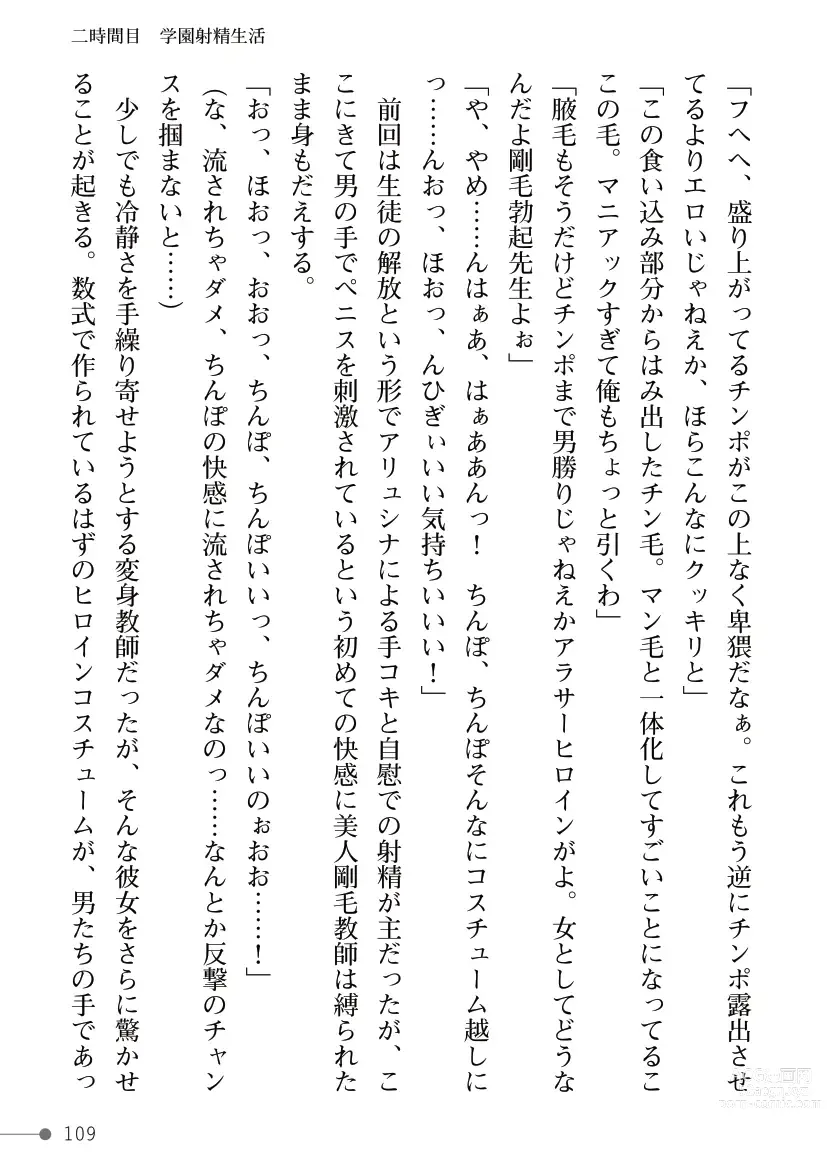 二時間目　学園射精生活
「フヘヘ、盛り上がってるチンポがこの上なく卑猥だなぁ。これもう逆にチンポ露出させ
てるよりエロいじゃねえか、ほらこんなにクッキリと」
「この食い込み部分からはみ出したチン毛。マン毛と一体化してすごいことになってるこ
この毛。マニアックすぎて俺もちょっと引くわ」
「腋毛もそうだけどチンポまで男勝りじゃねえかアラサーヒロインがよ。女としてどうな
んだよ剛毛勃起先生よぉ」
「や、やめ……んはぁあ、はぁああんっ！　ちんぽ、ちんぽそんなにコスチューム越しに
っ……んおっ、ほおっ、んひぎぃいい気持ちいいい！」
　前回は生徒の解放という形でアリュシナによる手コキと自慰での射精が主だったが、こ
こにきて男の手でペニスを刺激されているという初めての快感に美人剛毛教師は縛られた
まま身もだえする。
「おっ、ほおっ、おおっ、ちんぽ、ちんぽいいっ、ちんぽいいのぉおお……！」
（な、流されちゃダメ、ちんぽの快感に流されちゃダメなのっ……なんとか反撃のチャン
スを掴まないと……）
　少しでも冷静さを手繰り寄せようとする変身教師だったが、そんな彼女をさらに驚かせ
ることが起きる。数式で作られているはずのヒロインコスチュームが、男たちの手であっ
109